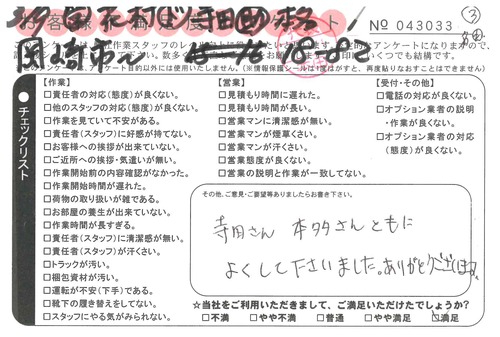 お客様満足度アンケート
No 043033
③
【作業】
□責任者の対応(態度)が良くない。
□他のスタッフの対応(態度)が良くない。
□作業を見ていて不安がある。
□責任者(スタッフ)に好感が持てない。
□お客様への挨拶が出来ていない。
□ご近所への挨拶・気遣いが無い。
□作業開始前の内容確認がなかった。
□作業開始時間が遅れた。
□荷物の取り扱いが雑である。
□お部屋の養生が出来ていない。
□作業時間が長すぎる。
□責任者(スタッフ)に清潔感が無い。
□責任者(スタッフ)が汗くさい。
□トラックが汚い。
□梱包資材が汚い。
□運転が不安(下手)である。
□靴下の履き替えをしてない。
□スタッフにやる気がみられない。
【営業】
□見積もり時間に遅れた。
□見積もり時間が長い。
□営業マンに清潔感が無い。
□営業マンが煙草くさい。
□営業マンが汗くさい。
□営業態度が良くない。
□営業の説明と作業が一致してない。
【受付・その他】
□電話の対応が良くない。
□オプション業者の説明
・作業が良くない。
□オプション業者の対応
(態度)が良くない。
●チェックリスト
その他、ご意見・ご要望等ありましたらお書き下さい。
寺田さん 本多さんともに
よくして下さいました。ありがとうございます。
☆当社をご利用いただきまして、ご満足いただけたでしょうか?
□不満 □やや不満 □普通 □やや満足 □満足